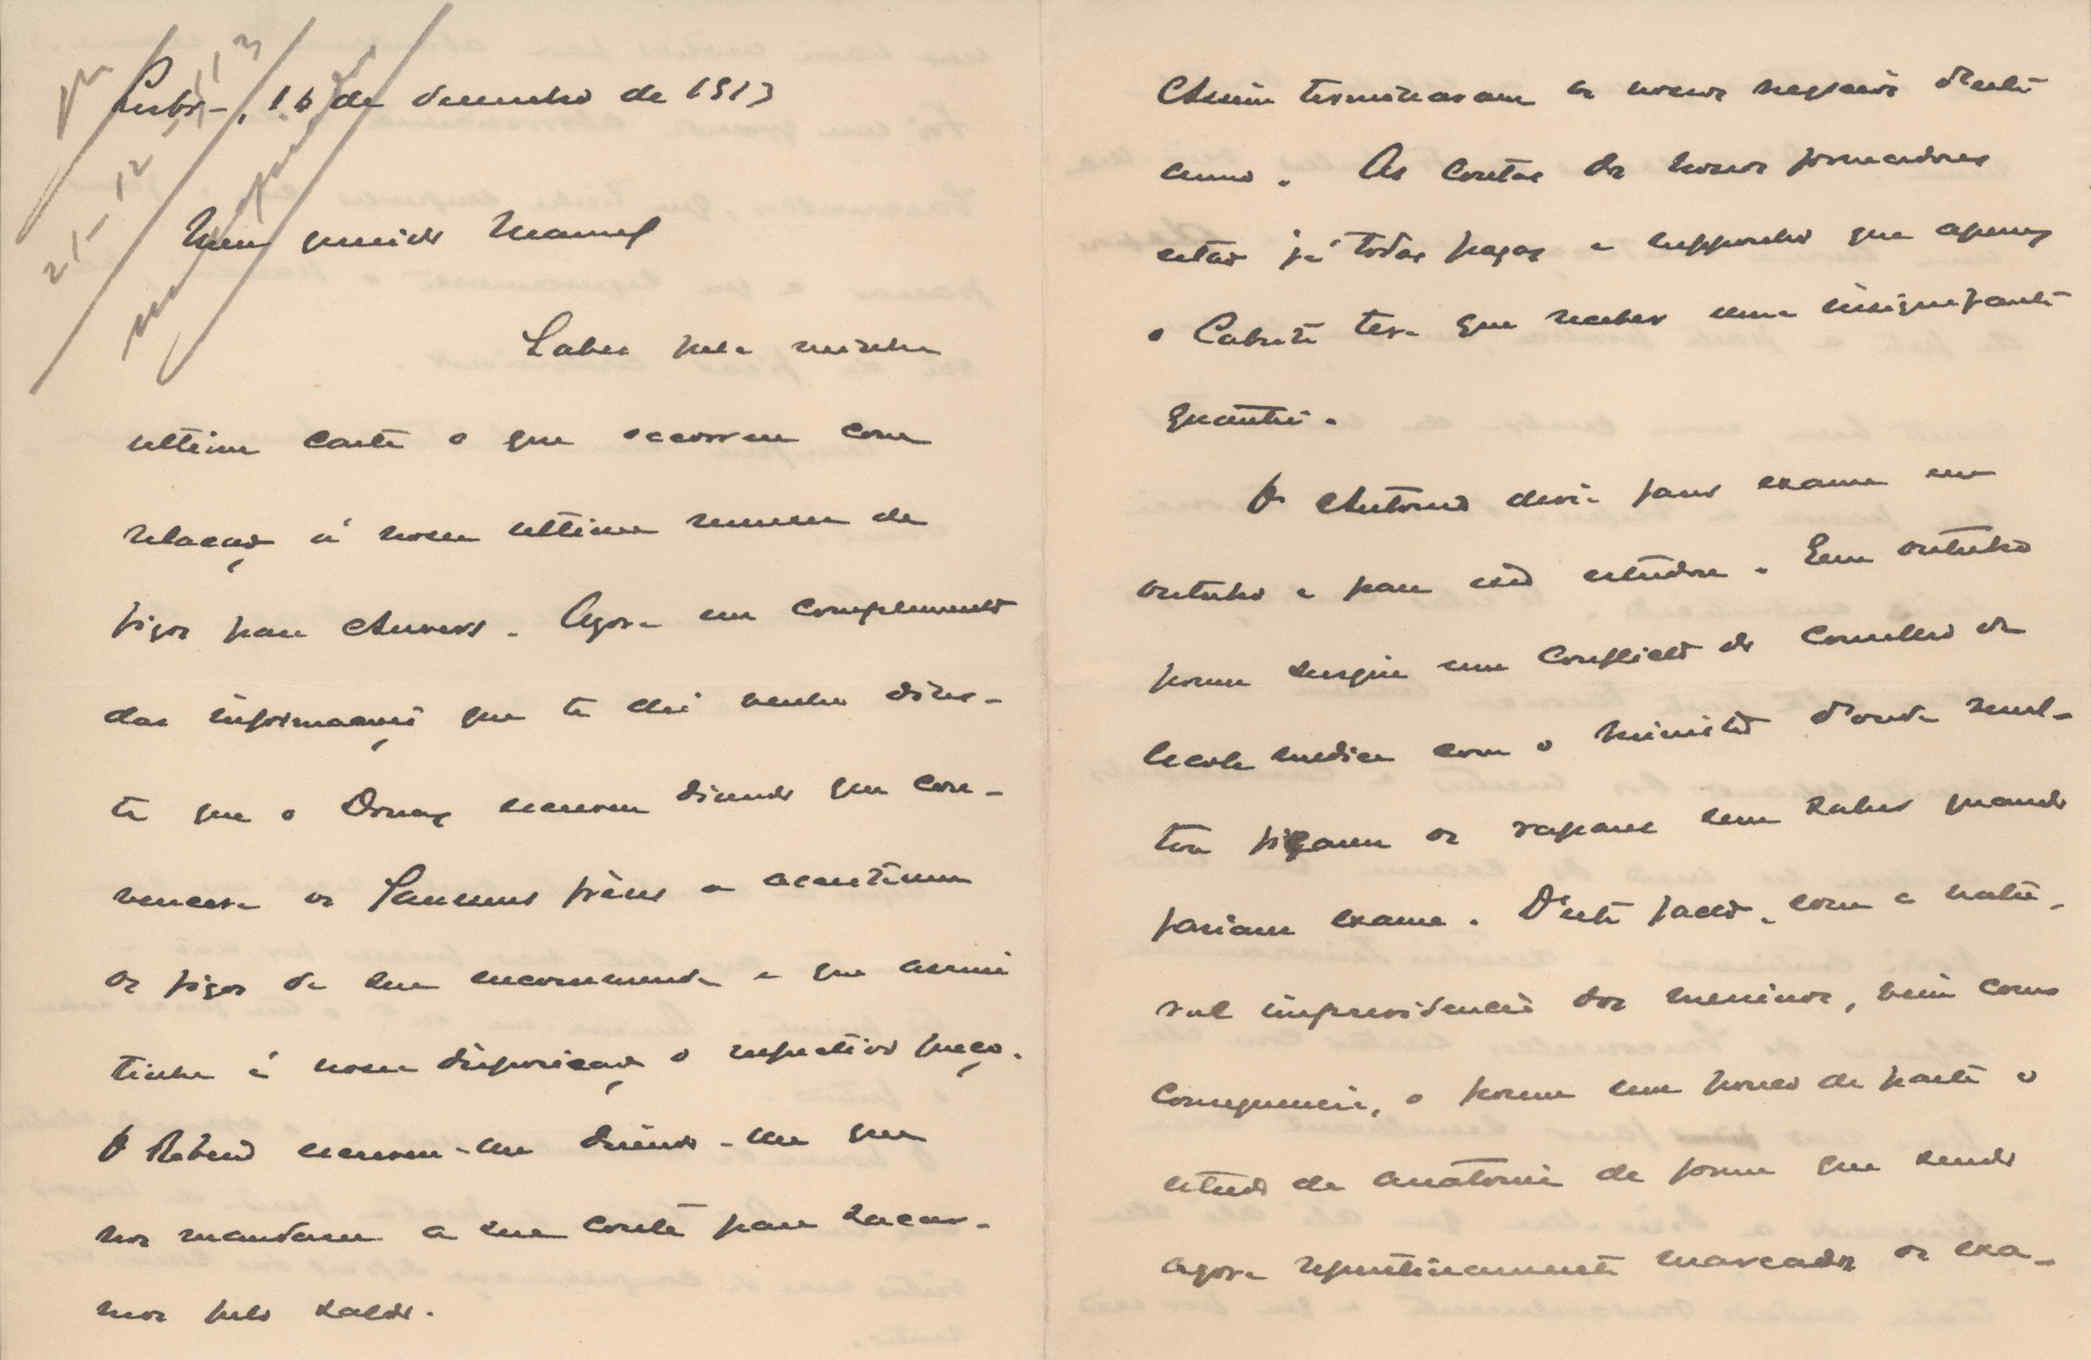 Lisboa, 16 de dezembro de 1913
21-12-913
Meu querido Manuel
Sabes pela minha
ultima carta o que occorreu com
relação á nossa ultima remessa de
figos para Anvers. Agora em complemento
das informações que te dei venho dizer-
te que o escreveu dizendo que con-
vencera os frères a acceitarem
os figos da sua encommenda e que assim
tinha á nossa disposição o respectivo preço.
O escreveu-me dizendo-me que
nos mandara a sua conta para sacar-
mos pelo saldo.
Assim terminaram os nossos negocios d'este
anno. As contas dos nossos fornecedores
estão já todas pagas e supponho que apenas
o Cabrita terá que receber uma insignificante
quantia.
O Antonio devia fazer exame em
outubro e para isso estudou. Em outubro
porem surgiu um conflicto do Conselho da
Escola medica com o ministro d'onde resul-
tou ficarem os rapazes sem saber quando
fariam exame. D'este facto, com a natu-
ral imprevidencia dos meninos, veio como
consequencia, o porem um pouco de parte o
estudo da anatomia de forma que sendo
agora repentinamente marcados os exa-